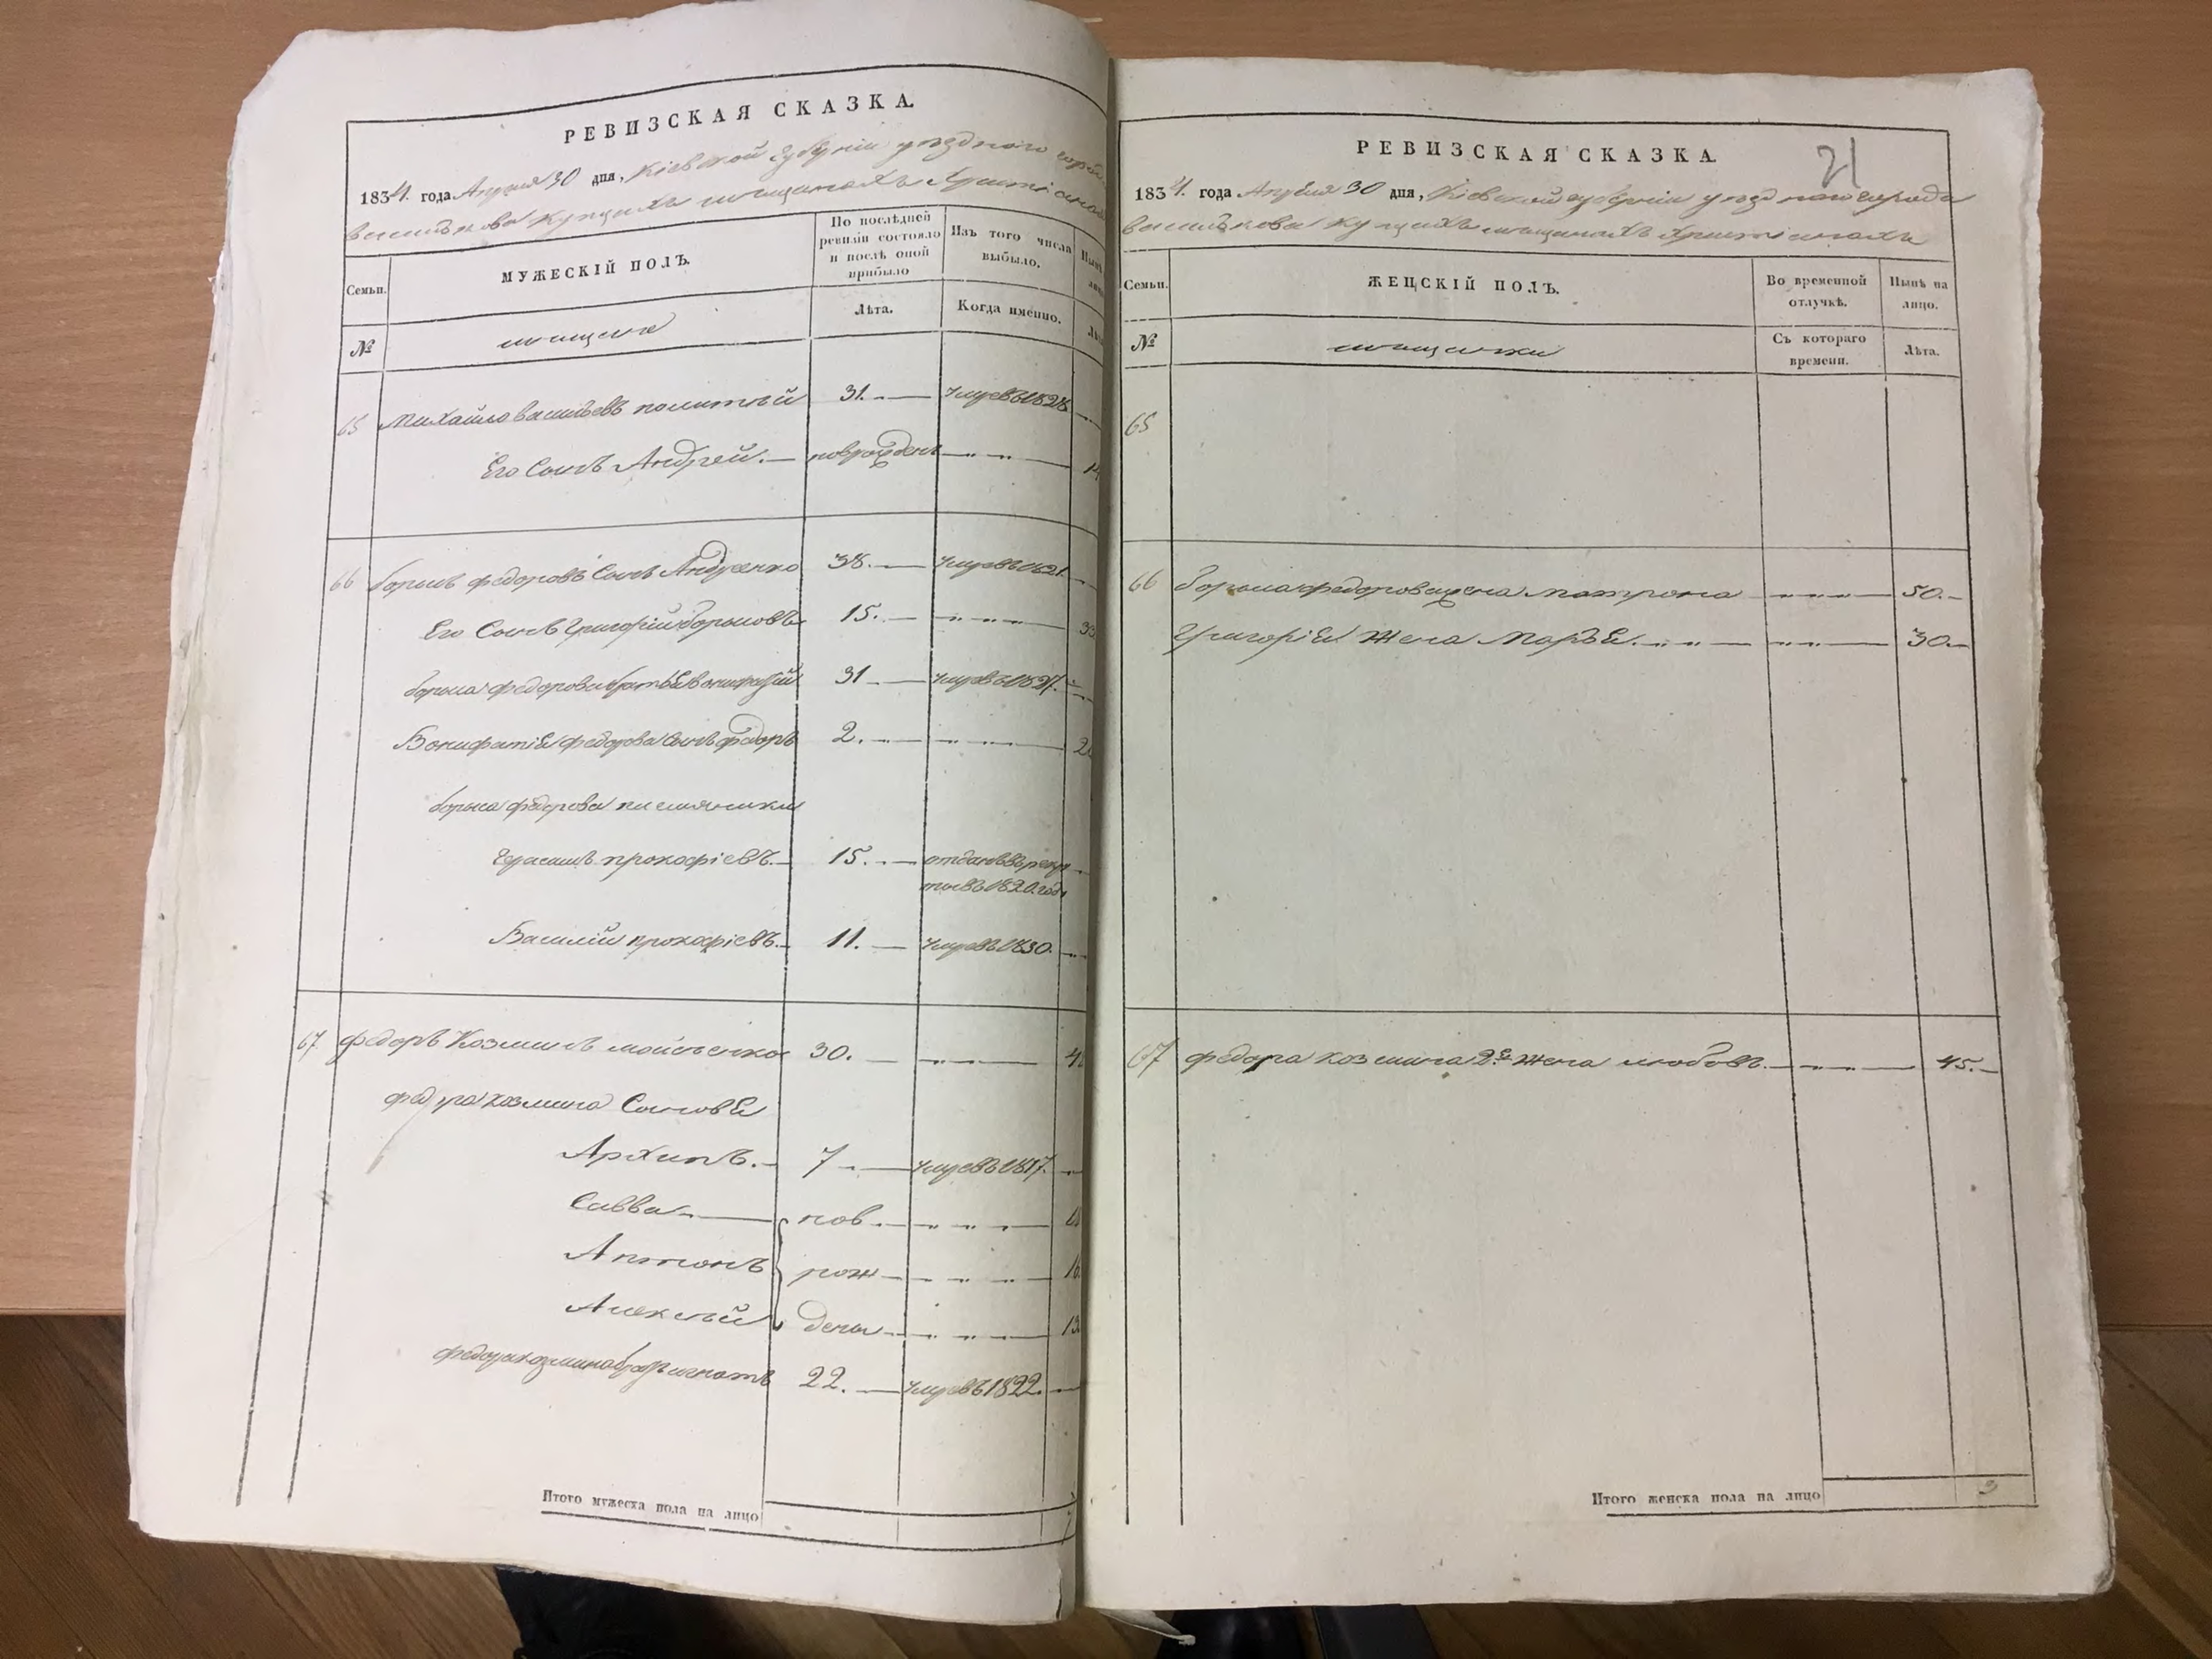 РЕВИЗСКАЯ СКАЗКА.
1834. года Апреля 30 дня, Кіевской губерніи уѣздного города
василькова купцахъ мещанахъ христіянахъ
Семьи.
МУЖЕСКІЙ ПОЛЪ.
По послѣдней ревизіи состояло и послѣ оной прибыло
Изъ того числа выбыло.
№
мещане
Лѣта.
Когда именно.
65 Михайло васильевъ 31. умре въ 1828
Его Сынъ Андрей. новорожденъ
66 борисъ федоровъ Сынъ Андреенко 38. умре въ 1821.
Его Сынъ Григорій борисовъ 15.
бориса федорова братъ Вонифатій 31 умре въ
Вонифатія федорова Сынъ федоръ 2.
бориса федорова племянники
Герасимъ прокофіевъ. 15. отданъ въ рекру
ты въ 1820. году
Василій прокофіевъ. 11. умре въ 1830.
67 федоръ Козминъ мойсенко 30.
федора козмина Сыновья
Архипъ. 7 умре въ 1817.
Савва нов
Антонъ рож 16
Алексѣй дены 13
федора козмина братъ игнатъ 22. умре въ 1822.
Итого мужеска пола на лицо
РЕВИЗСКАЯ СКАЗКА.
21
1834. года Апреля 30 дня, Кіевской губерніи уѣздного города
василькова купцахъ мещанахъ христіянахъ
Семьи.
ЖЕНСКІЙ ПОЛЪ.
Во временной отлучкѣ.
Нынѣ на лицо.
№
мещанки
Съ котораго времени.
Лѣта.
65
66 бориса федорова жена матрона 50.
Григорія жена марья. 30.
67 федора козмина 2я жена любовъ. 45.
Итого женска пола на лицо 3